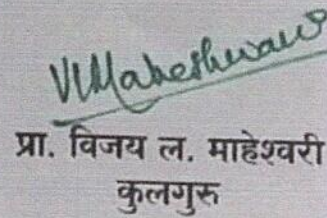 VLMaheshwari
प्रा. विजय ल. माहेश्वरी
कुलगुरु